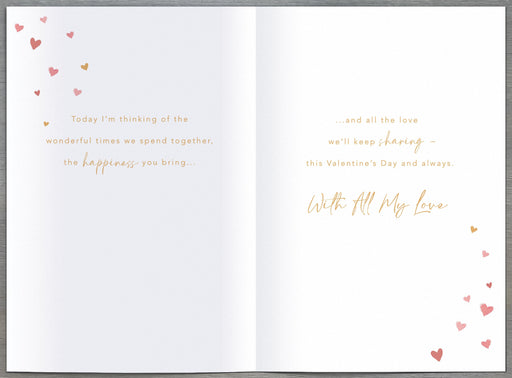 Today I'm thinking of the
wonderful times we spend together,
the happiness you bring...
...and all the love
we'll keep sharing –
this Valentine's Day and always.
With All My Love